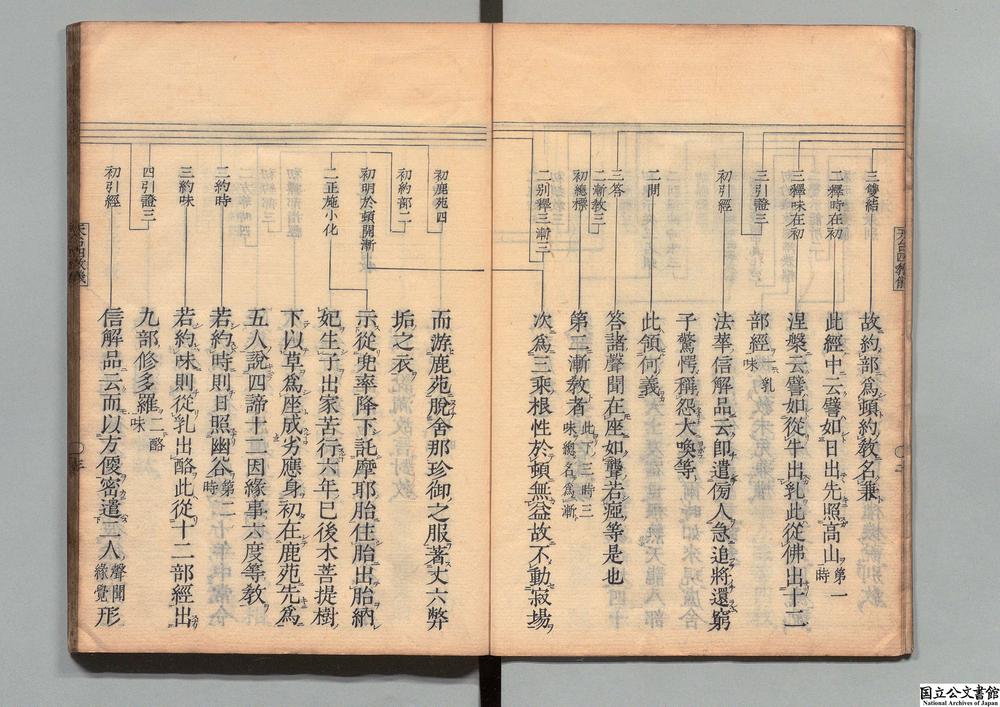 三雙結
二釋時在初
三釋味在初
三引證三
初引經
二問
三答
二漸教三
初總標
二別釋三漸三
故約部爲頓約教名兼
此經中云譬如日出先照高山第一時
涅槃云譬如從牛出乳此從佛出十二
部經乳味
法華信解品云即遣傍人急追將還窮
子驚愕稱怨大喚等
此領何義
答諸聲聞在座如聾若瘂等是也
第二漸教者此下三時三味總名爲漸
次爲三乘根性於頓無益故不動寂場
天台四教儀
初鹿苑四
初約部二
初明於頓開漸
二正施小化
二約時
三約味
四引證三
初引經
而游鹿苑脫舍那珍御之服著丈六弊
垢之衣
示從兜率降下託摩耶胎住胎出胎納
妃生子出家苦行六年已後木菩提樹
下以草爲座成劣應身初在鹿苑先爲
五人說四諦十二因緣事六度等教
若約時則日照幽谷第二時
若約味則從乳出酪此從十二部經出
九部修多羅二酪味
信解品云而以方便密遣二人聲聞緣覺形
天台四教儀
国立公文書館
National Archives of Japan